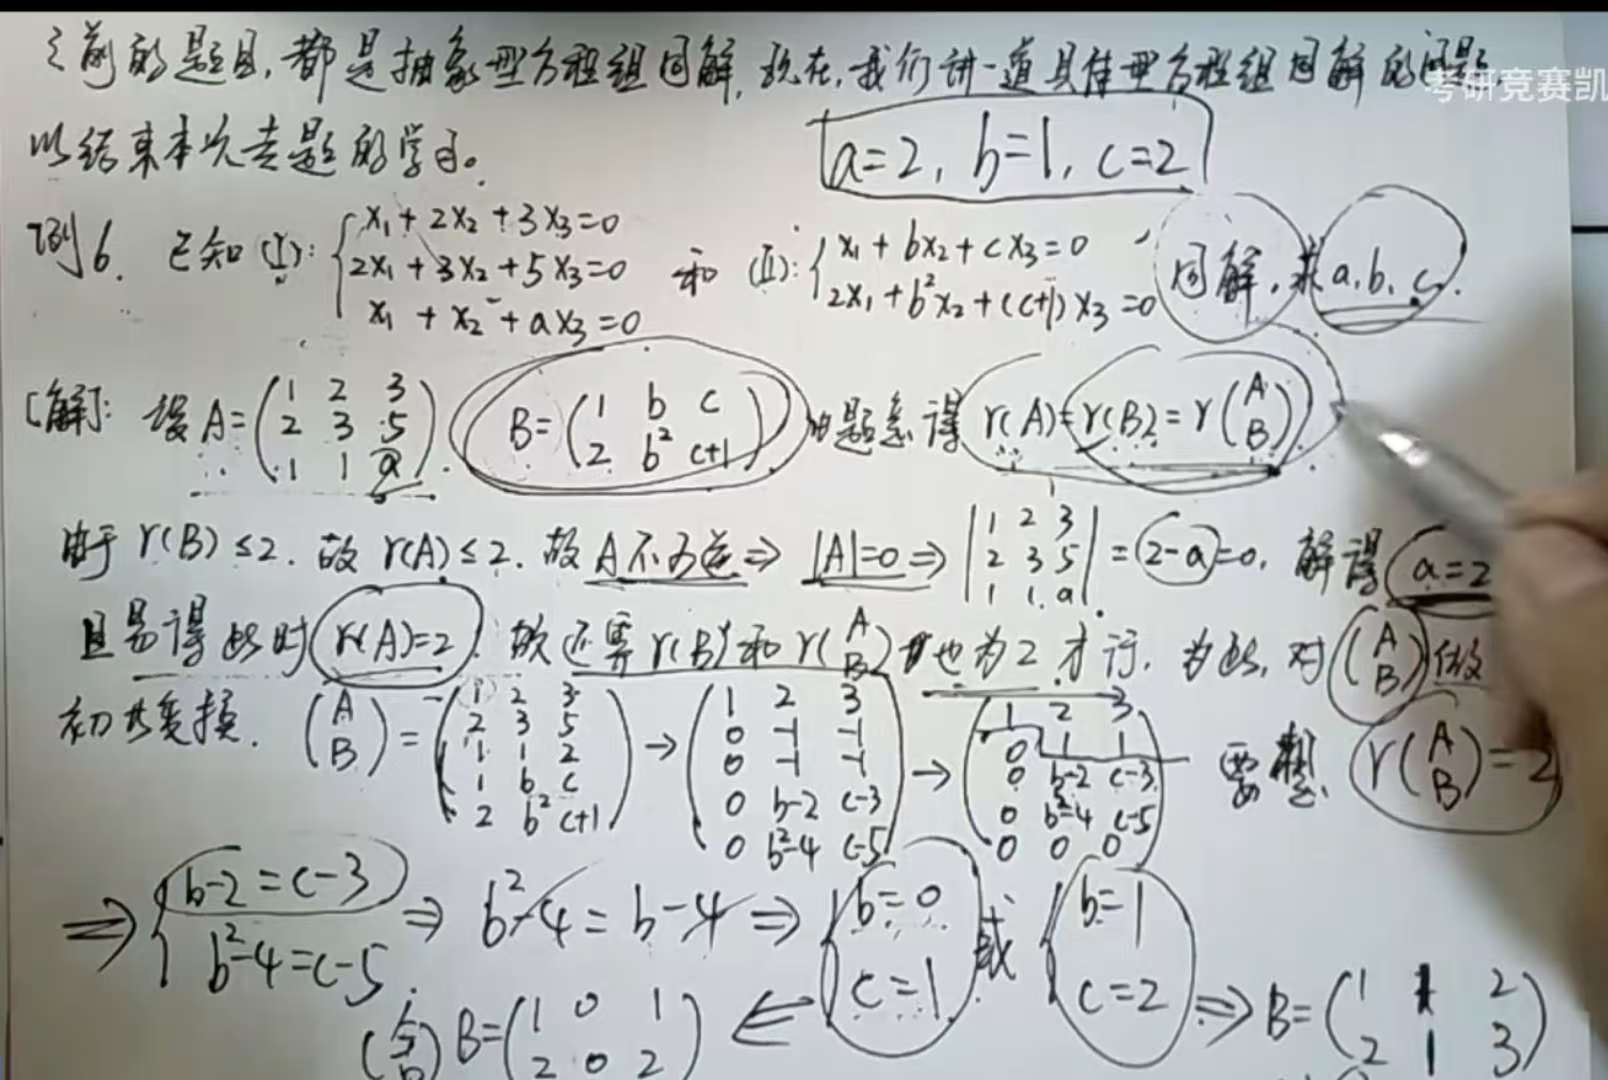 之前的题目,都是抽象型方程组同解,现在,我们讲一道具体型方程组同解的问题,
考研竞赛凯
以结束本次专题的学习。
a=2, b=1, c=2
例6. 已知(I): { x₁+2x₂+3x₃=0 2x₁+3x₂+5x₃=0 x₁+x₂+ax₃=0 和 (II): { x₁+bx₂+cx₃=0 2x₁+b²x₂+(c+1)x₃=0 同解,求a,b,c.
[解]: 设A=(1 2 3 2 3 5 1 1 a). B=(1 b c 2 b² c+1) 由题意得 r(A)=r(B)=r(A B).
由于r(B)≤2. 故r(A)≤2. 故A不可逆⇒|A|=0⇒|1 2 3 2 3 5 1 1 a|=2-a=0, 解得a=2
且易得此时r(A)=2. 故还需r(B)和r(A B)也为2才行. 为此, 对(A B)做
初等变换. (A B)=(1 2 3 2 3 5 1 1 2 1 b c 2 b² c+1)→(1 2 3 0 -1 -1 0 -1 -1 0 b-2 c-3 0 b²-4 c-5)→(1 2 3 0 1 1 0 b-2 c-3 0 b²-4 c-5 0 0 0) 要 r(A B)=2
⇒{ b-2=c-3 b²-4=c-5. ⇒ b²-4=b-4 ⇒ { b=0 c=1 或 { b=1 c=2 ⇒ B=(1 1 2 2 1 3)
B=(1 0 1 2 0 2) ⇐